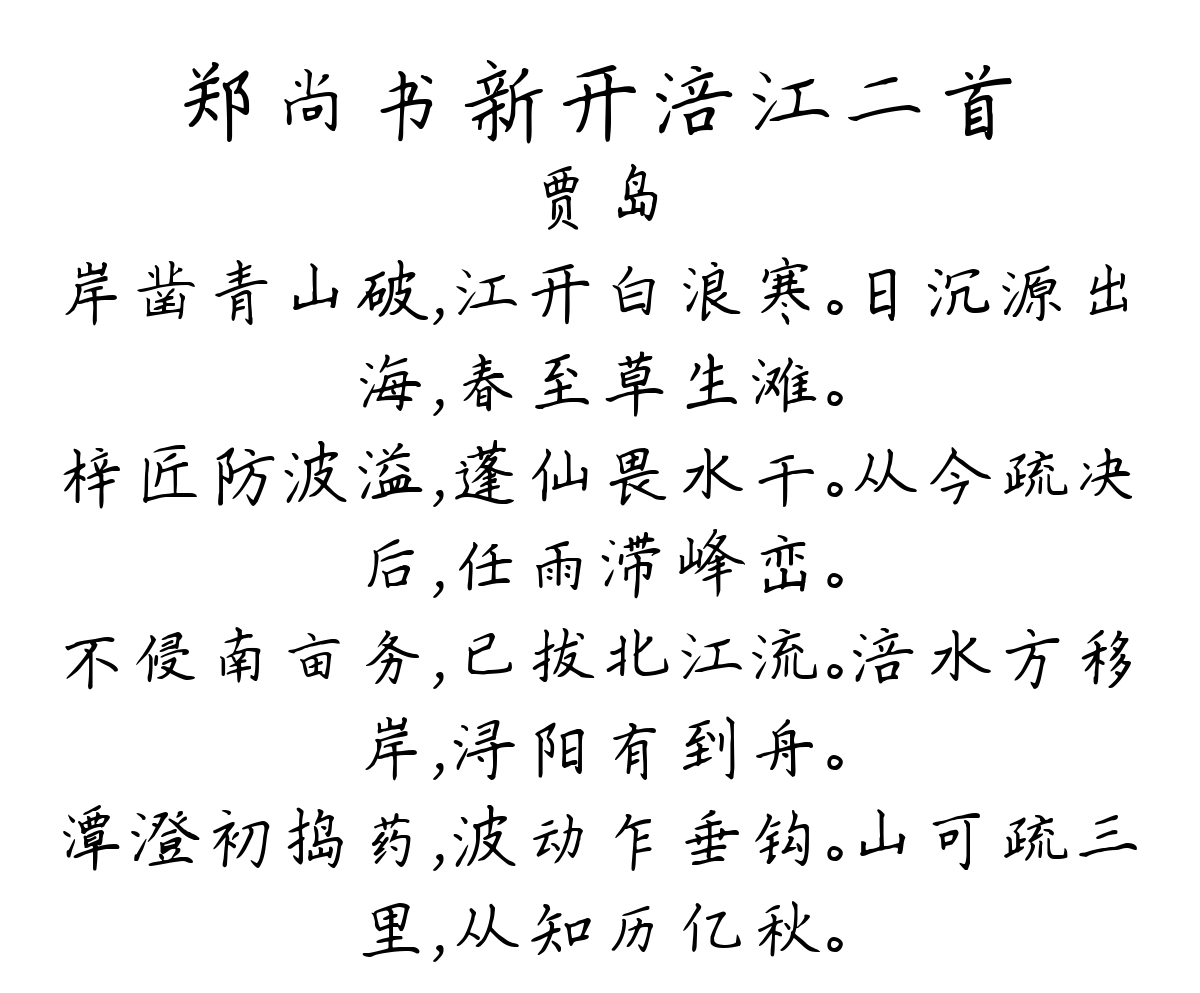 郑尚书新开涪江二首
贾岛
岸凿青山破,江开白浪寒。日沉源出
海,春至草生滩。
梓匠防波溢,蓬仙畏水干。从今疏决
后,任雨滞峰峦。
不侵南亩务,已拔北江流。涪水方移
岸,浔阳有到舟。
潭澄初捣药,波动乍垂钩。山可疏三
里,从知历亿秋。